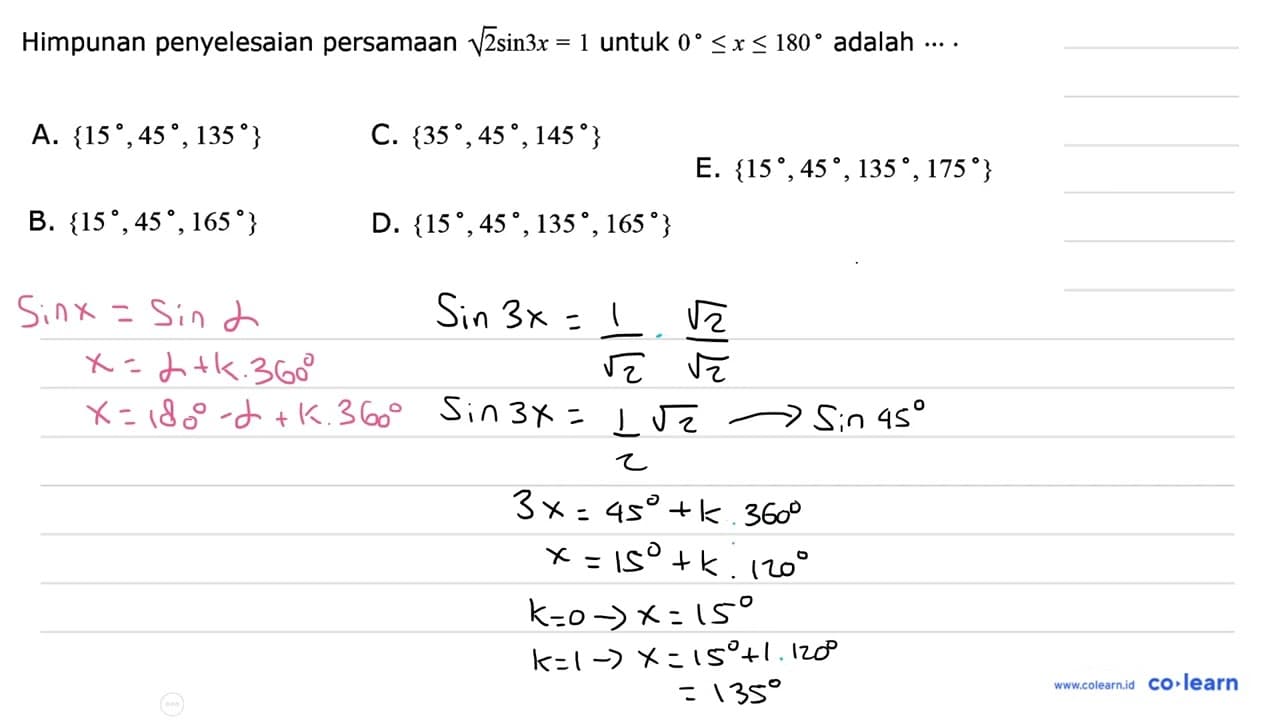 Himpunan penyelesaian persamaan √2sin3x = 1 untuk 0° ≤ x ≤ 180° adalah ... .
A. {15°, 45°, 135°}
C. {35°, 45°, 145°}
E. {15°, 45°, 135°, 175°}
B. {15°, 45°, 165°}
D. {15°, 45°, 135°, 165°}
Sin x = Sin α
x = α + k.360°
x = 180° - α + k.360°
Sin 3x = 1/√2 . √2/√2
Sin 3x = 1/2 √2 → Sin 45°
3x = 45° + k . 360°
x = 15° + k . 120°
k=0 → x = 15°
k=1 → x = 15° + 1 . 120°
= 135°
www.colearn.id co·learn